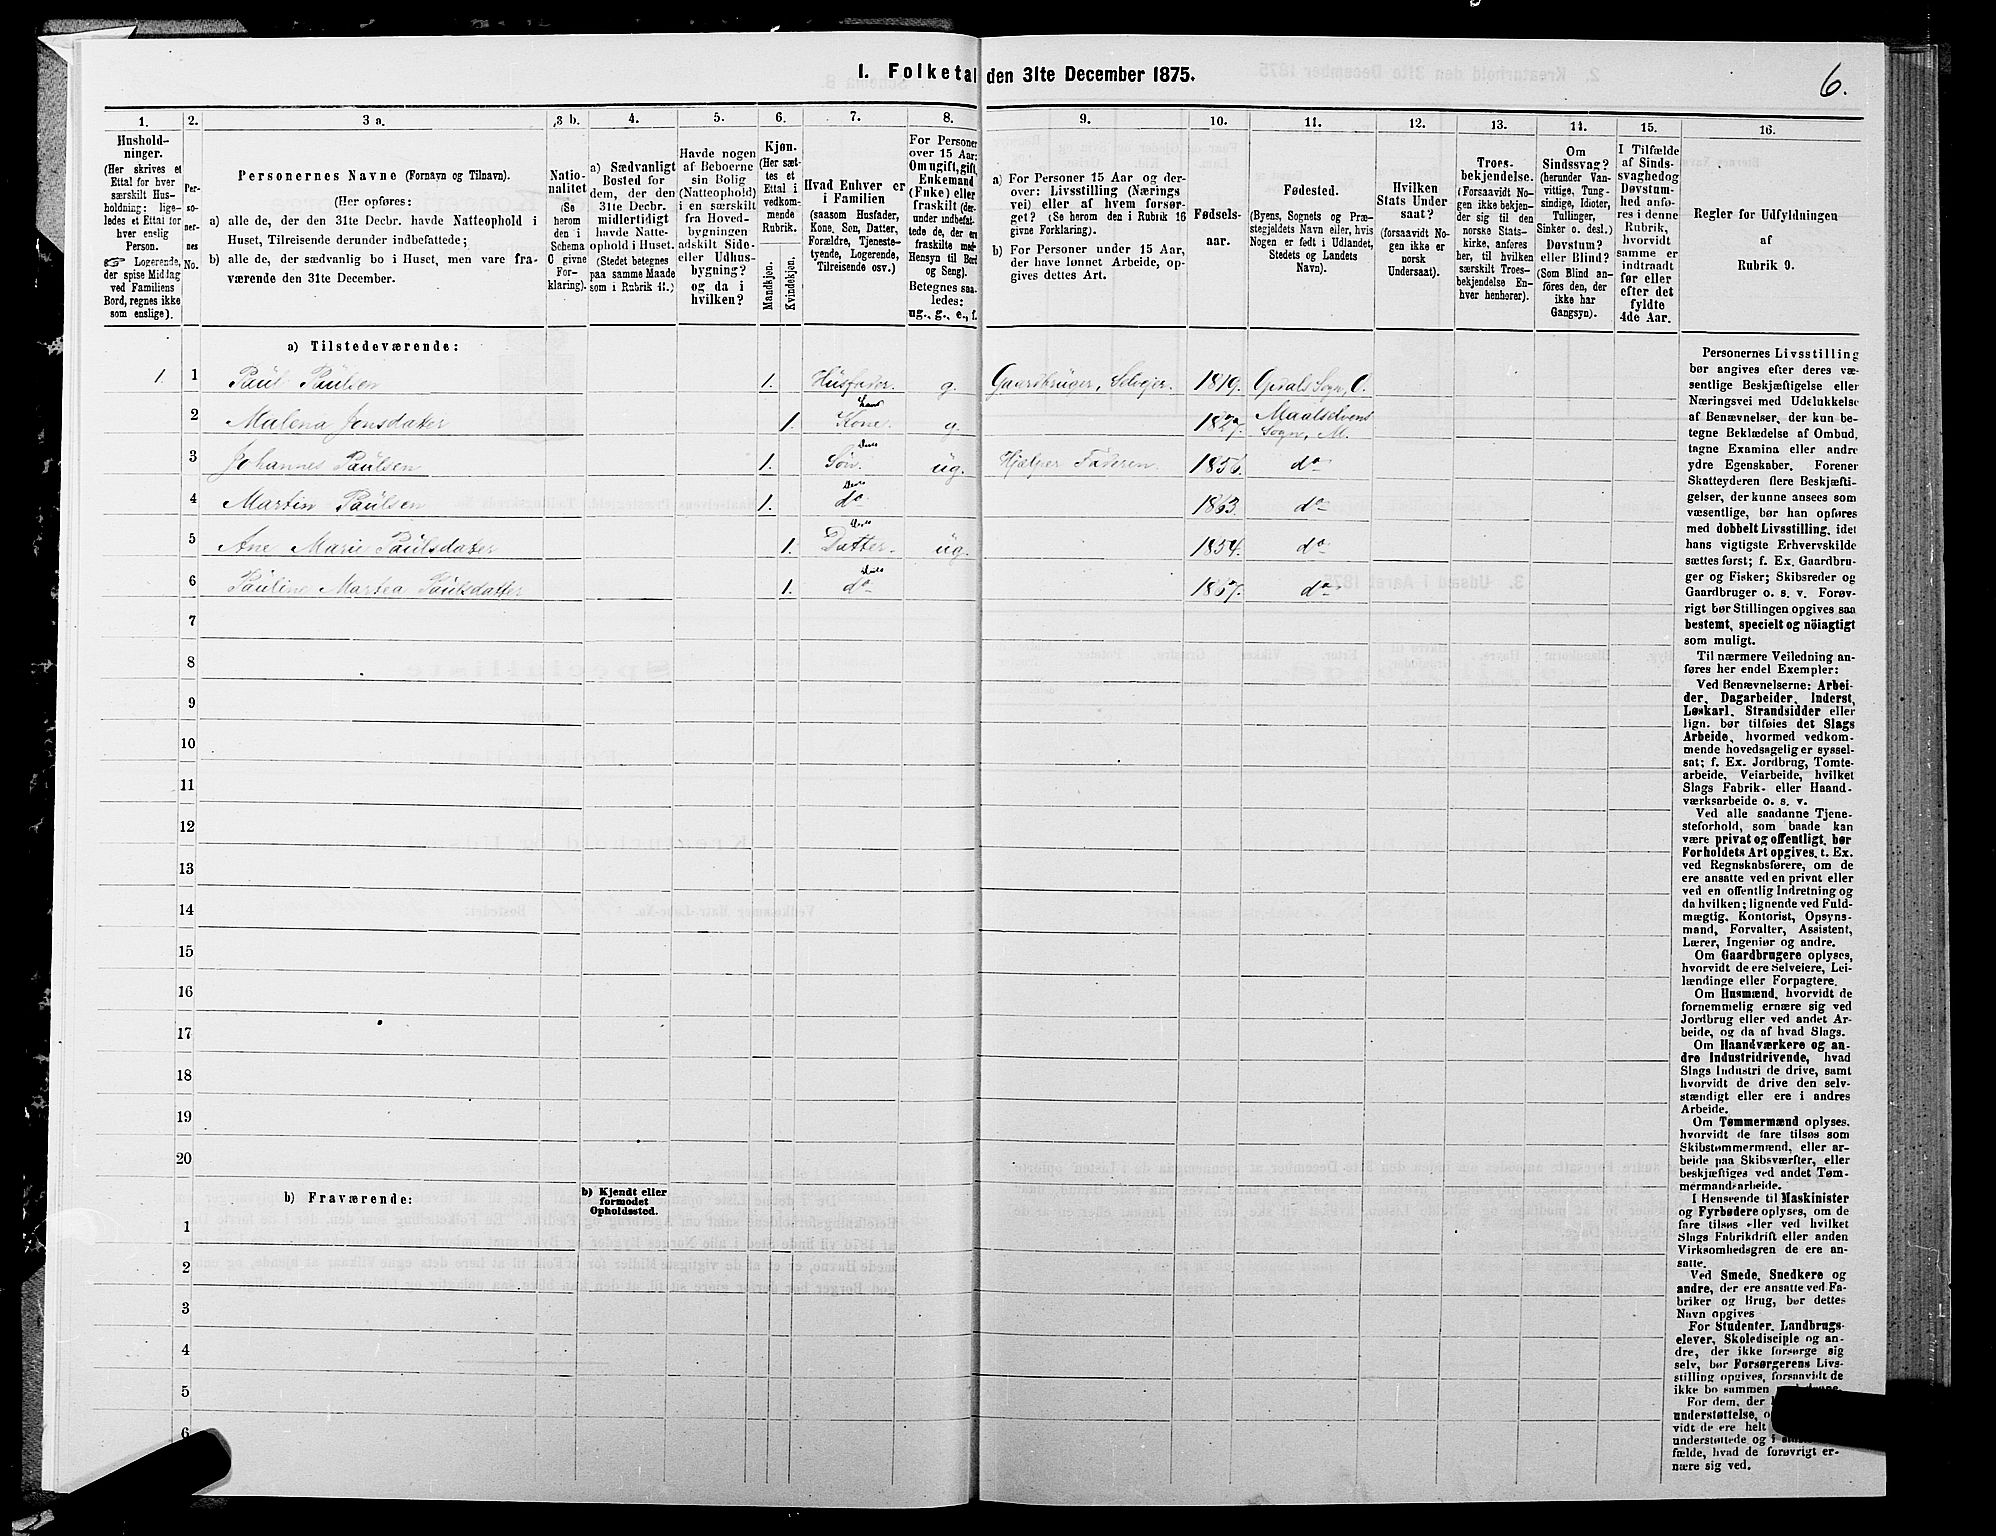 1. Folketal den 31te December 1875.
6.
1.
Hushold-
ninger.
(Her skrives et
Ettal for hver
særskilt Hus-
holdning: lige-
ledes et Ettal for
hver enslig
Person.
☞ Logerende,
der spise Middag
ved Familiens
Bord, regnes ikke
som enslige).
2.
Per-
so-
ner-
nes
No.
3 a.
Personernes Navne (Fornavn og Tilnavn).
(Her opføres:
a) alle de, der den 31te Decbr. havde Natteophold i
Huset, Tilreisende derunder indbefattede;
b) alle de, der sædvanlig bo i Huset, men vare fra-
værende den 31te December.
3 b.
Natio-
nalitet
(Se
herom
den i
Schema
C givne
For-
klaring).
4.
a) Sædvanligt
Bosted for
dem, der den
31te Decbr.
midlertidigt
havde Natte-
ophold i Huset.
(Stedet betegnes
paa samme Maade
som i Rubrik 11.)
5.
Havde nogen
af Beboerne
sin Bolig
(Natteophold)
i en særskilt
fra Hoved-
bygningen
adskilt Side-
eller Udhus-
bygning?
og da i
hvilken?
6.
Kjøn.
(Her sæt-
tes et
Ettal i
vedkom-
mende
Rubrik.
Mandkjøn.
Kvindekjøn.
7.
Hvad Enhver er
i Familien
(saasom Husfader,
Kone, Søn, Datter,
Forældre, Tjeneste-
tyende, Logerende,
Tilreisende osv.)
8.
For Personer
over 15 Aar:
Om ugift, gift,
Enkemand
(Enke) eller
fraskilt (der-
under indbefat-
tede de, der ere
fraskilte med
Hensyn til Bord
og Seng).
Betegnes saa-
ledes:
ug., g., e., f.
9.
a) For Personer 15 Aar og der-
over: Livsstilling (Nærings
vei) eller af hvem forsør-
get? (Se herom den i Rubrik 16
givne Forklaring).
b) For Personer under 15 Aar,
der have lønnet Arbeide, op-
gives dettes Art.
10.
Fødsels-
aar.
11.
Fødested.
(Byens, Sognets og Præ-
stegjeldets Navn eller, hvis
Nogen er født i Udlandet,
Stedets og Landets
Navn).
12.
Hvilken
Stats Under
saat?
(forsaavidt No-
gen ikke er
norsk
Undersaat).
13.
Troes-
bekjendelse.
(Forsaavidt No-
gen ikke bekjen-
der sig til den
norske Stats-
kirke, anføres
her, til hvilken
særskilt Troes-
bekjendelse En-
hver henhører).
14.
Om
Sindssvag?
(herunder Van-
vittige, Tung-
sindige, Idioter,
Tullinger,
Sinker o. desl.)
Døvstum?
eller Blind?
(Som Blind an-
føres den, der
ikke har
Gangsyn).
15.
I Tilfælde
af Sinds-
svaghed og
Døvstum-
hed anfø-
res i denne
Rubrik,
hvorvidt
samme er
indtraadt
før eller
efter det
fyldte
4de Aar.
16.
Regler for Udfyldningen
af
Rubrik 9.
a) Tilstedeværende:
1. 1 Paul Paulsen 1. Husfader. g. Gaardbruger, Selvejer. 1819. Opdals Sogn, O.
2 Malena Jensdatter 1. hans Kone. g. 1827. Maalselvens Sogn, M.
3 Johannes Paulsen 1. deres Søn ug. Hjelper Faderen. 1856. do
4 Martin Paulsen 1. deres do 1863. do
5 Ane Marie Paulsdatter 1. deres Datter. ug. 1854. do
6 Pauline Martea Paulsdatter 1. deres do 1867. do
7
8
9
10
11
12
13
14
15
16
17
18
19
20
b) Fraværende:
b) Kjendt eller
formodet
Opholdssted.
1
2
3
4
5
6
Personernes Livsstilling
bør angives efter deres væ-
sentlige Beskjæftigelse eller
Næringsvei med Udelukkelse
af Benævnelser, der kun be-
tegne Beklædelse af Ombud,
tagne Examina eller andre
ydre Egenskaber. Forener
Skatteyderen flere Beskjæfti-
gelser, der kunne ansees som
væsentlige, bør han opføres
med dobbelt Livsstilling, idet
hans vigtigste Erhvervskilde
sættes først; f. Ex. Gaardbru-
ger og Fisker; Skibsreder og
Gaardbruger o. s. v. Forøv-
rigt bør Stillingen opgives saa
bestemt, specielt og nöiagtigt
som muligt.
Til nærmere Veiledning an-
føres her endel Exempler:
Ved Benævnelserne: Arbei-
der, Dagarbeider, Inderst,
Løskarl, Strandsidder eller
lign. bør tilføies det Slags
Arbeide, hvormed vedkom-
mende hovedsagelig er syssel-
sat; f. Ex. Jordbrug, Tomte-
arbeide, Veiarbeide, hvilket
Slags Fabrik- eller Haand-
værksarbeide o. s. v.
Ved alle saadanne Tjene-
steforhold, som baade kan
være privat og offentligt, bør
Forholdets Art opgives, t. Ex.
ved Regnskabsførere, om de
ere ansatte ved en privat eller
ved en offentlig Indretning og
da hvilken; lignende ved Fuld-
mægtig, Kontorist, Opsyns-
mand, Forvalter, Assistent,
Lærer, Ingeniør og andre.
Om Gaardbrugere oplyses,
hvorvidt de ere Selveiere, Lei-
lændinge eller Forpagtere.
Om Husmænd, hvorvidt de
fornemmelig ernære sig ved
Jordbrug eller ved andet Ar-
beide, og da af hvad Slags.
Om Haandværkere og an-
dre Industridrivende, hvad
Slags Industri de drive, samt
hvorvidt de drive den selv-
stændigt eller ere i andres
Arbeide.
Om Tømmermænd oplyses,
hvorvidt de fare tilsøs som
Skibstømmermænd, eller ar-
beide paa Skibsværfter, eller
beskjæftiges ved andet Tøm-
mermandsarbeide.
I Henseende til Maskinister
og Fyrbødere oplyses, om de
fare tilsøs eller ved hvilket
Slags Fabrikdrift eller anden
Virksomhedsgren de ere an-
satte.
Ved Smede, Snedkere og
andre, der ere ansatte ved Fa-
briker og Brug, bør dettes
Navn opgives
For Studenter, Landbrugs-
elever, Skoledisciple og an-
dre, der ikke forsørge sig
selv, bør Forsørgerens Livs-
stilling opgives, forsaavidt de
ikke bo sammen
For dem, der
understøttelse,
vidt de ere helt
understøttede og i
fælde, hvad de forøvrigt er-
nære sig ved.